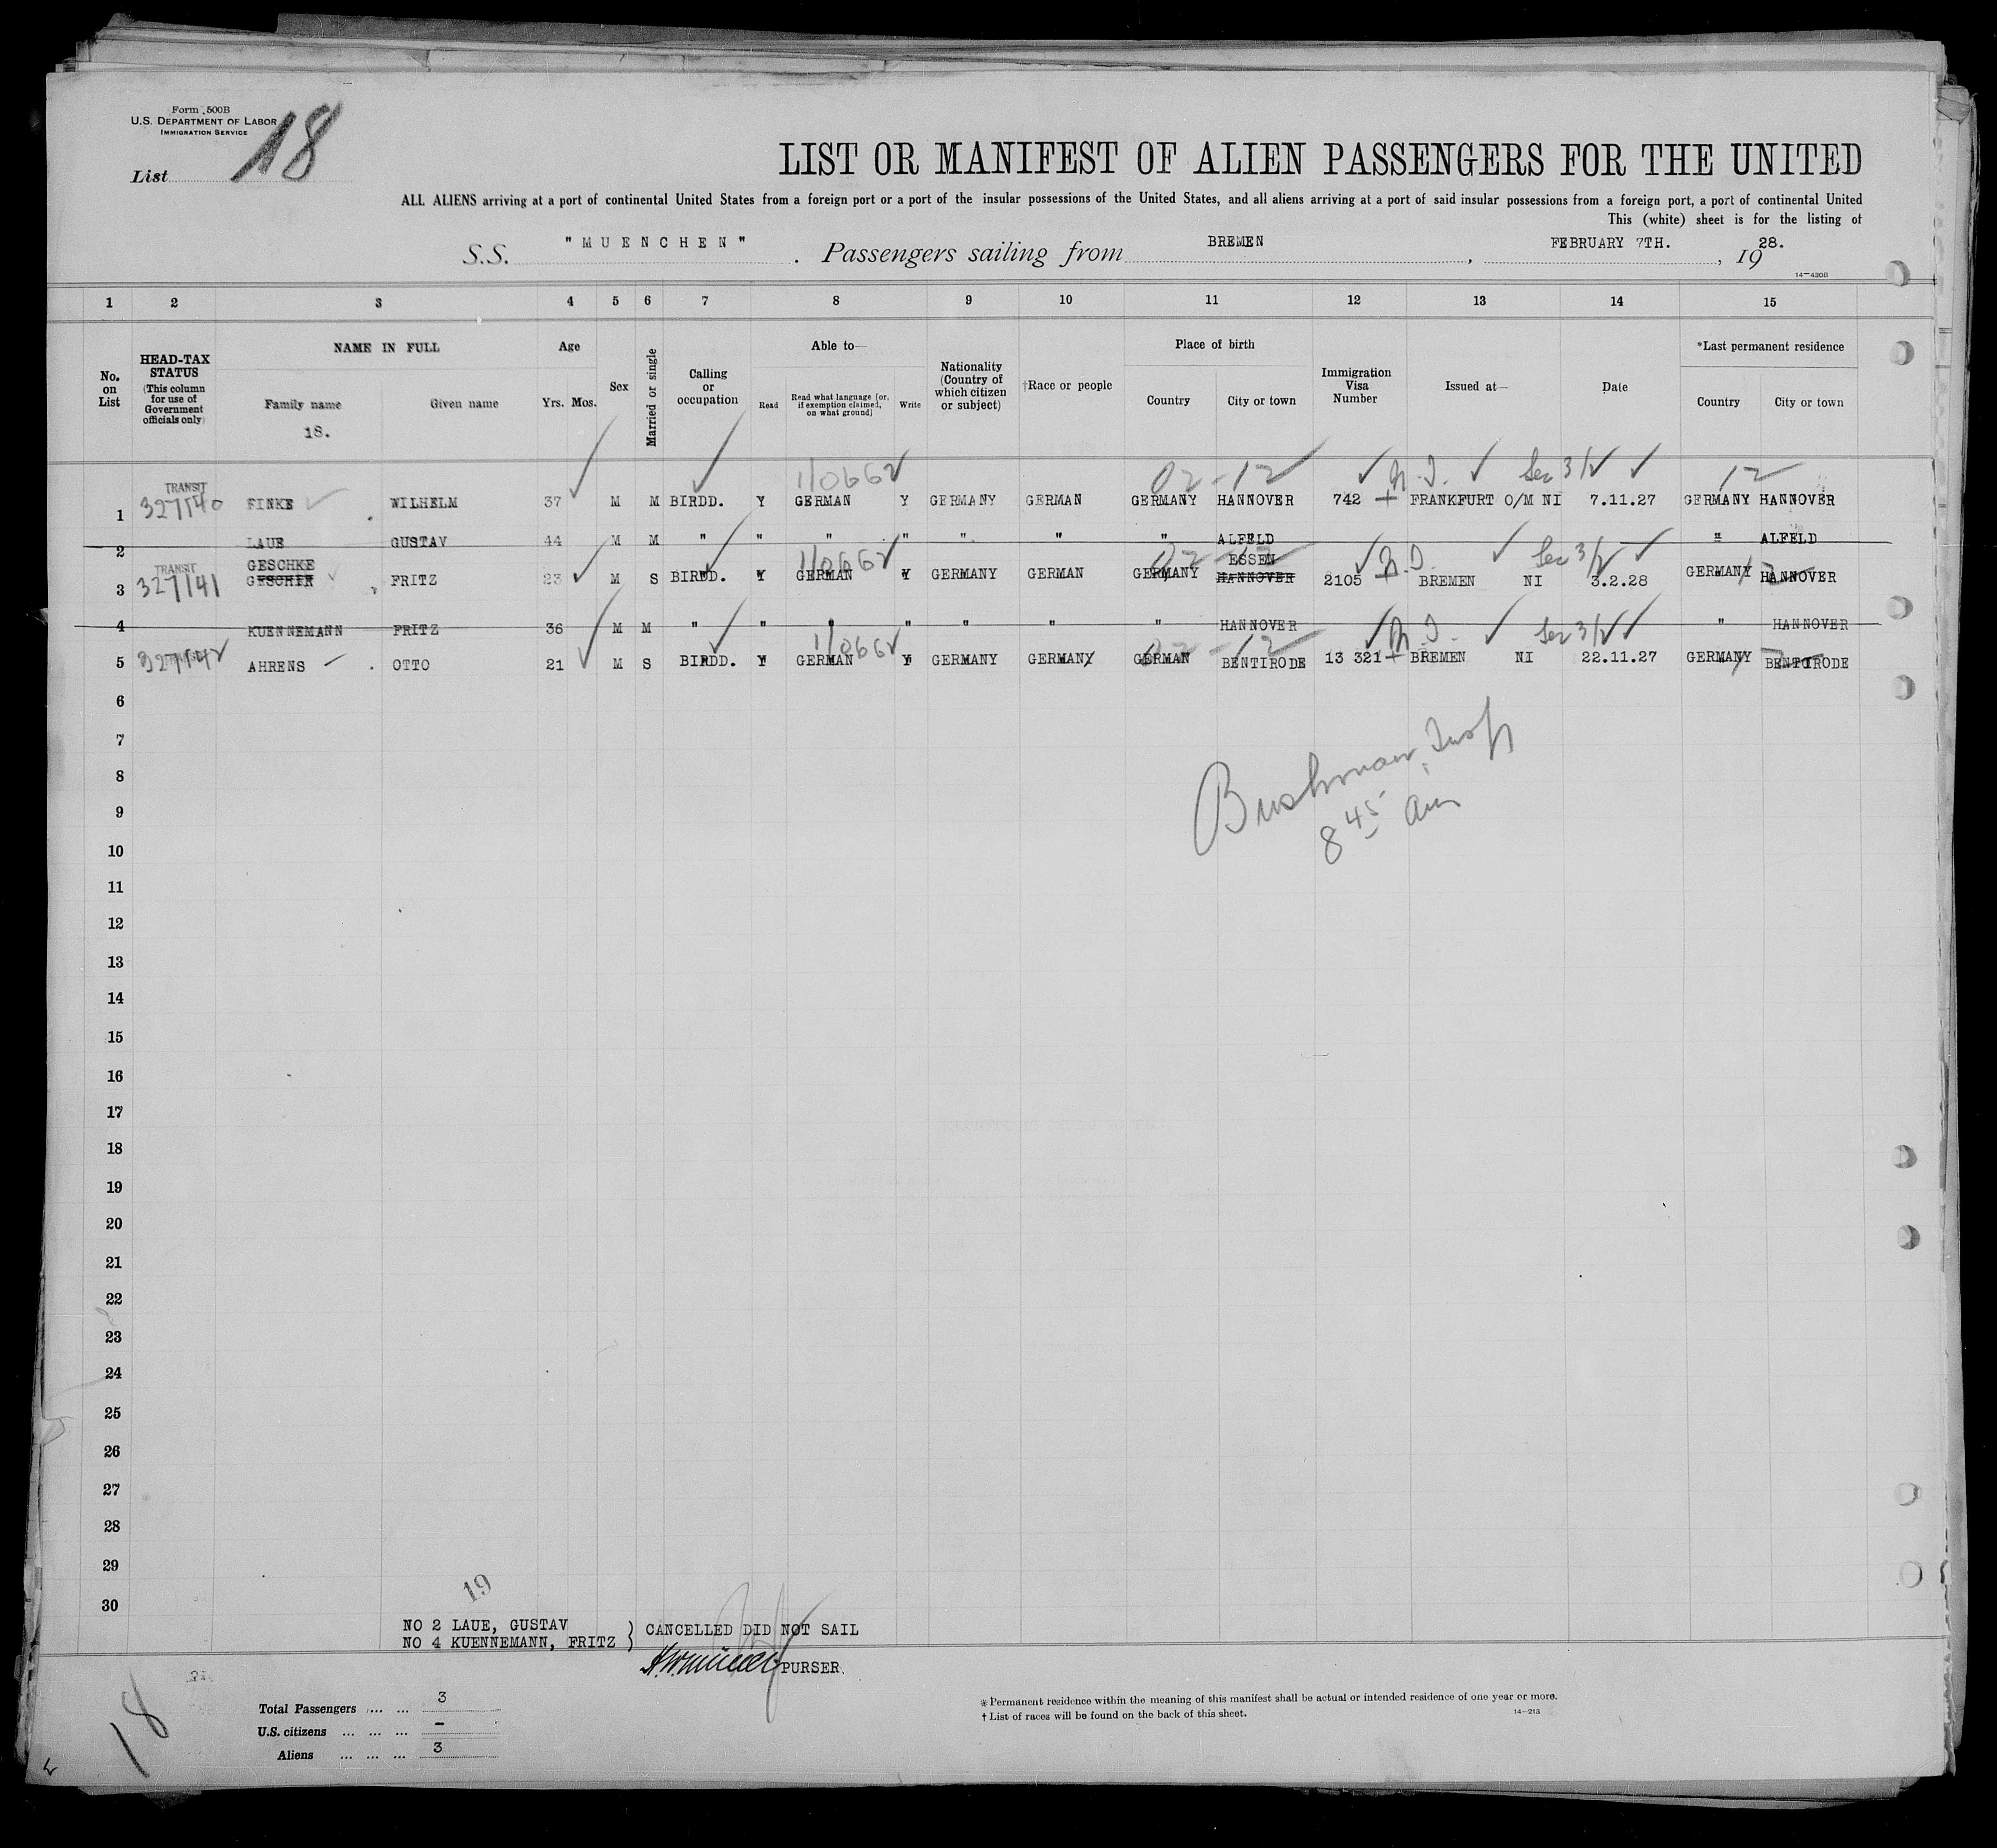 Form 500B
U.S. DEPARTMENT OF LABOR
IMMIGRATION SERVICE
List 18
LIST OR MANIFEST OF ALIEN PASSENGERS FOR THE UNITED
ALL ALIENS arriving at a port of continental United States from a foreign port or a port of the insular possessions of the United States, and all aliens arriving at a port of said insular possessions from a foreign port, a port of continental United
This (white) sheet is for the listing of
S.S. "MUENCHEN". Passengers sailing from BREMEN, FEBRUARY 7TH., 1928.
14—430B
1 2 3 4 5 6 7 8 9 10 11 12 13 14 15
No. on List
HEAD-TAX STATUS (This column for use of Government officials only)
NAME IN FULL
Family name Given name
18.
Age
Yrs. Mos.
Sex
Married or single
Calling or occupation
Able to—
Read
Read what language [or, if exemption claimed, on what ground]
Write
Nationality (Country of which citizen or subject)
†Race or people
Place of birth
Country City or town
Immigration Visa Number
Issued at—
Date
*Last permanent residence
Country City or town
110662 02-12 N.I. Sec 3/2 12
TRANSIT
1 327140 FINKE WILHELM 37 M M BIRDD. Y GERMAN Y GERMANY GERMAN GERMANY HANNOVER 742 FRANKFURT O/M NI 7.11.27 GERMANY HANNOVER
2 LAUE GUSTAV 44 M M " " " " " " " ALFELD " ALFELD
110662 02-12 N.I. Sec 3/2
TRANSIT GESCHKE ESSEN
3 327141 GESCHIR FRITZ 23 M S BIRDD. Y GERMAN Y GERMANY GERMAN GERMANY HANNOVER 2105 BREMEN NI 3.2.28 GERMANY HANNOVER
4 KUENNEMANN FRITZ 36 M M " " " " " " " HANNOVER " HANNOVER
110662 02-12 N.I. Sec 3/2
5 327142 AHRENS OTTO 21 M S BIRDD. Y GERMAN Y GERMANY GERMANY GERMAN BENTIRODE 13 321 BREMEN NI 22.11.27 GERMANY BENTIRODE
6
7
Bushman, Insp
8
8 45 am
9
10
11
12
13
14
15
16
17
18
19
20
21
22
23
24
25
26
27
28
29
30
19
NO 2 LAUE, GUSTAV
NO 4 KUENNEMANN, FRITZ ) CANCELLED DID NOT SAIL
PURSER.
18
Total Passengers ... ... 3
U.S. citizens ... ... ... -
Aliens ... ... ... 3
* Permanent residence within the meaning of this manifest shall be actual or intended residence of one year or more.
† List of races will be found on the back of this sheet.
14—213